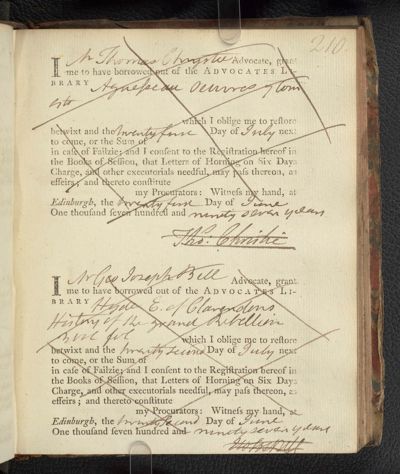 210.
I Mr Thomas Christie Advocate, grant
me to have borrowed out of the ADVOCATES LI-
BRARY Aguesseau Oeuvres 9 tom
4to
which I oblige me to restore
betwixt and the twenty first Day of July next
to come, or the Sum of
in case of Failzie; and I consent to the Registration hereof in
the Books of Session, that Letters of Horning on Six Days
Charge, and other executorials needful, may pass thereon, as
effeirs; and thereto constitute
my Procurators: Witness my hand, at
Edinburgh, the twenty first Day of June
One thousand seven hundred and ninety seven years
Tho: Christie
I Mr Geo Joseph Bell Advocate, grant
me to have borrowed out of the ADVOCATES LI-
BRARY Hyde E. of Clarendons
History of the grand Rebellion
which I oblige me to restore
betwixt and the twenty second Day of July next
to come, or the Sum of
in case of Failzie; and I consent to the Registration hereof in
the Books of Session, that Letters of Horning on Six Days
Charge, and other executorials needful, may pass thereon, as
effeirs; and thereto constitute
my Procurators: Witness my hand, at
Edinburgh, the twenty second Day of June
One thousand seven hundred and ninety seven years
Bell